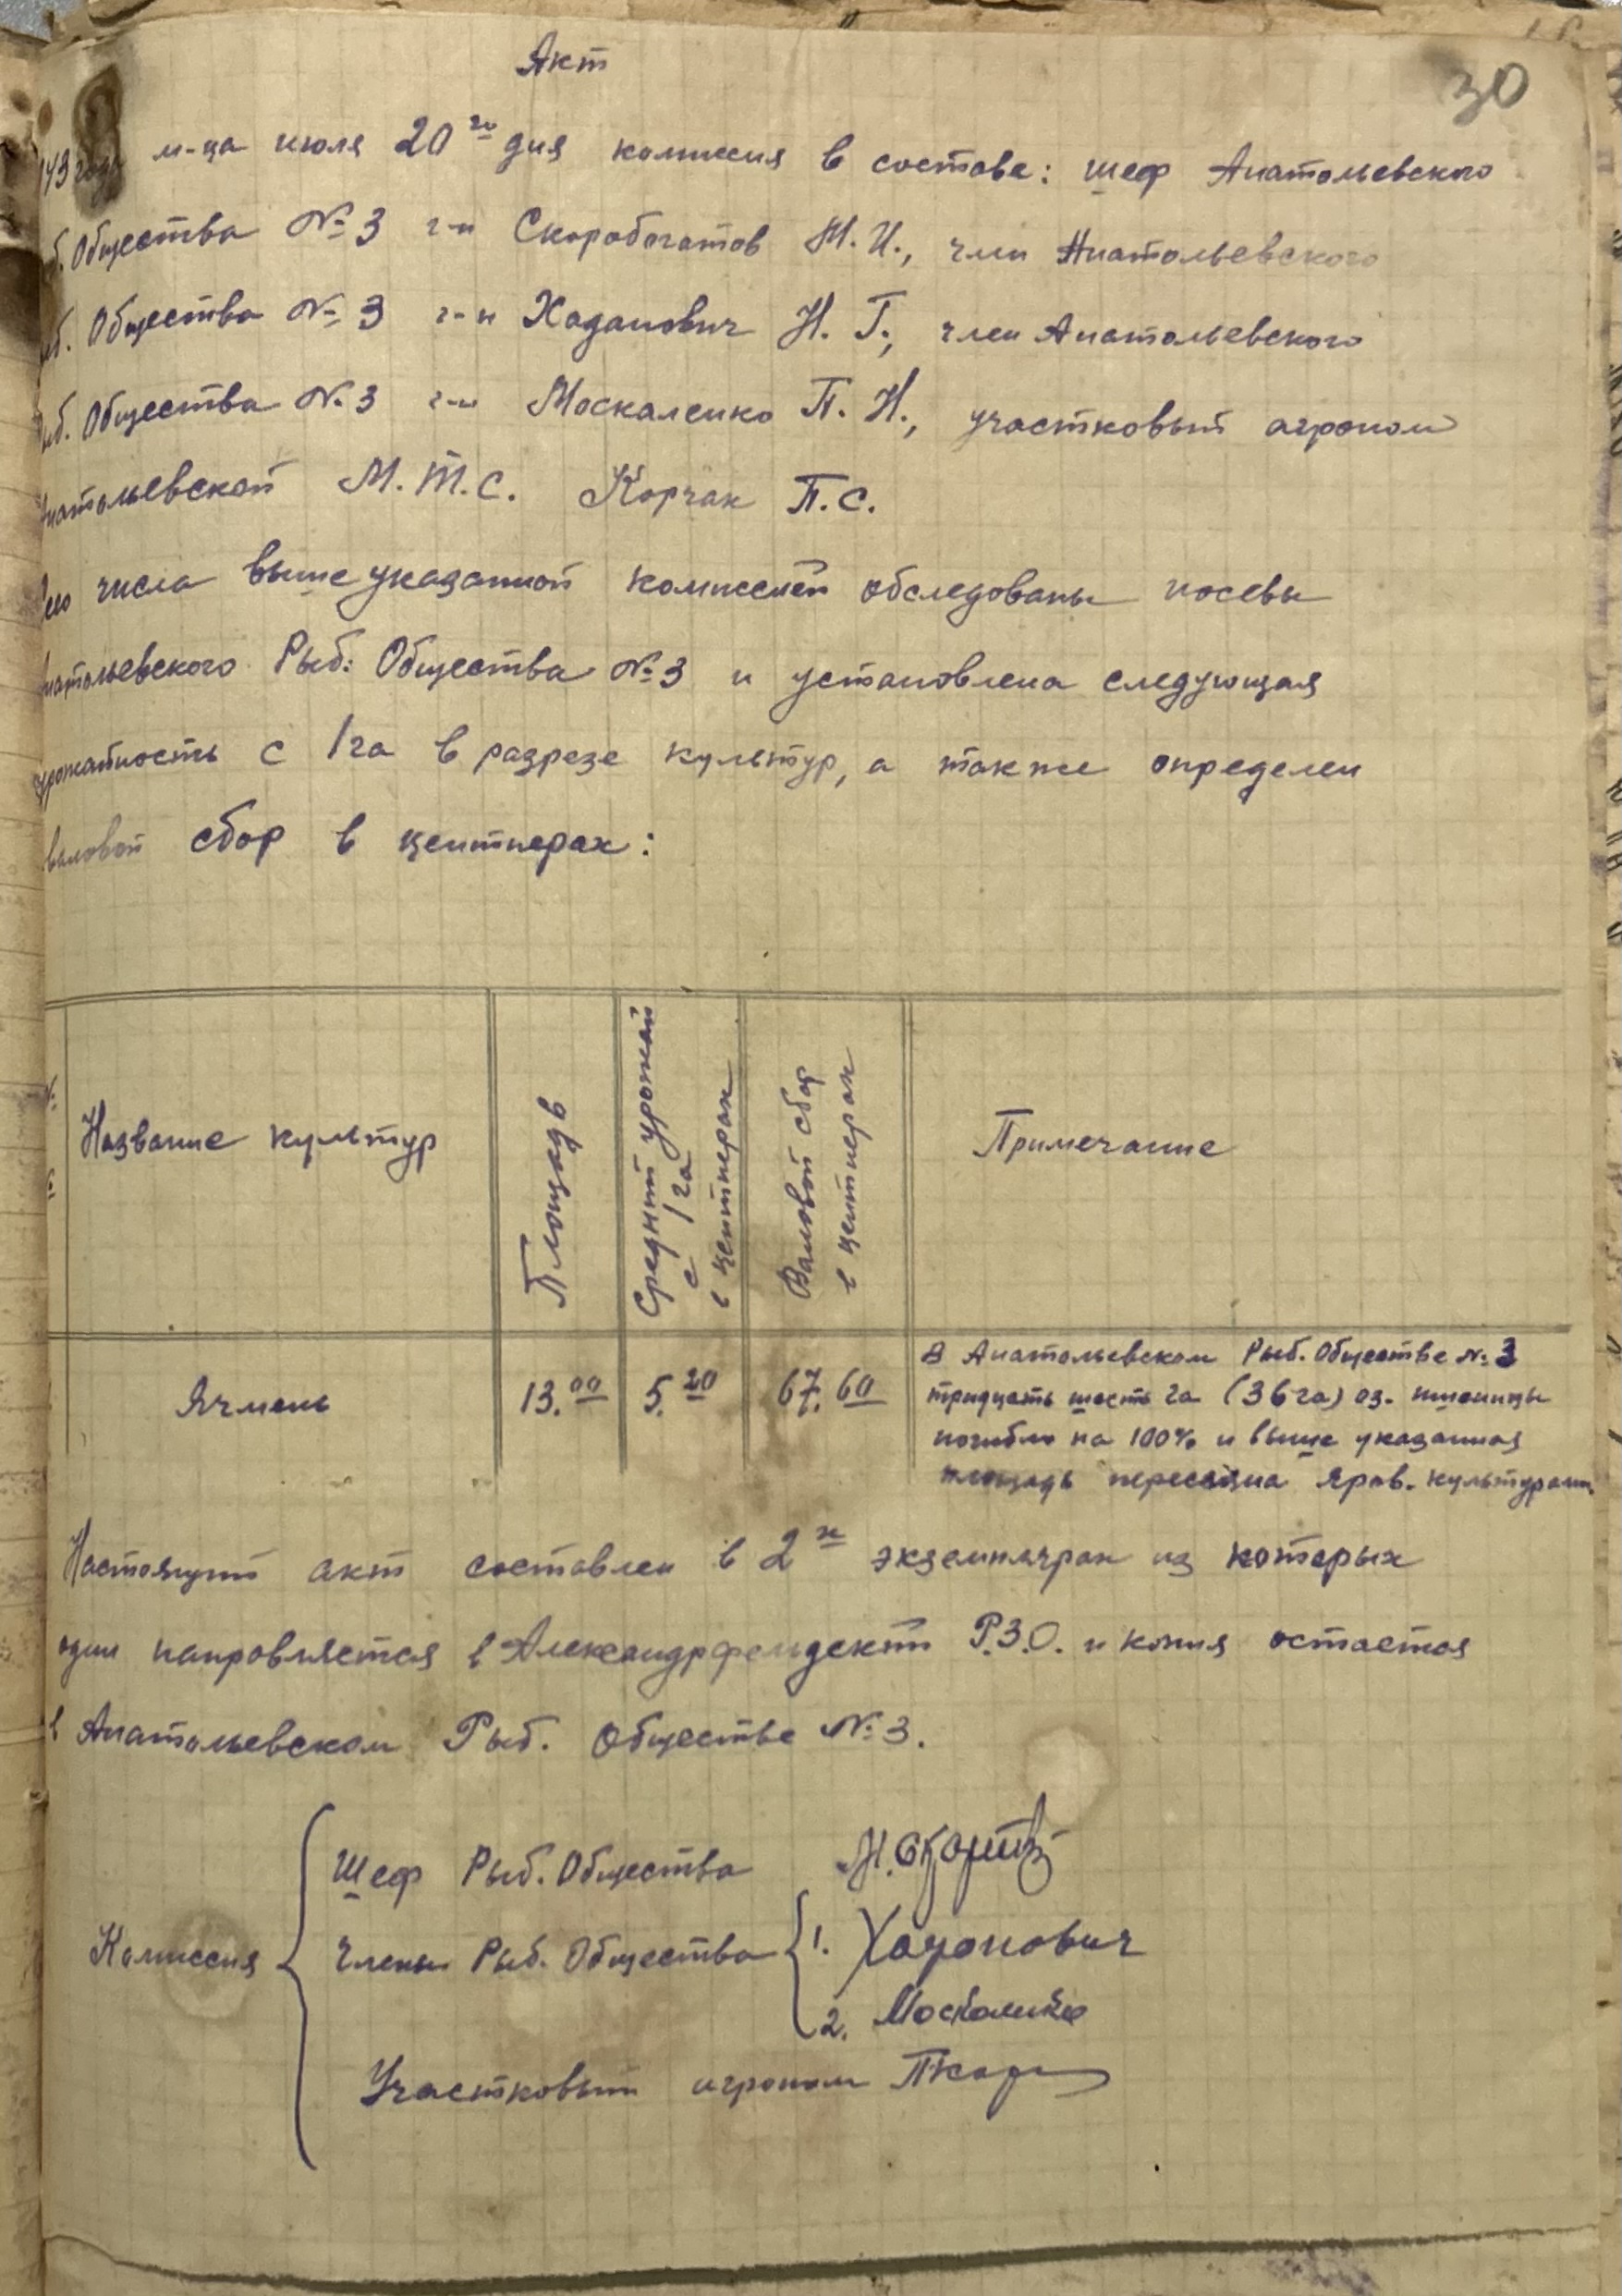 Акт
30
143 года м-ца июля 20го дня комиссия в составе: шеф Анатольевского
б. Общества №3 г-н Скоробогатов Н. И., член Анатольевского
ыб. Общества №3 г-н Ходанович Н. Г., член Анатольевского
Рыб. Общества №3 г-н Москаленко П. Н., участковый агроном
Анатольевской М.Т.С. Корчак П.С.
числа вышеуказанной комиссией обследованы посевы
натольевского Рыб. Общества №3 и установлена следующая
урожайность с 1 га в разрезе культур, а также определен
валовой сбор в центнерах:
№
Название культур
Площадь
Средний урожай с 1 га в центнерах
Валовой сбор в центнерах
Примечание
Ячмень 13.00 5.20 67.60
В Анатольевском Рыб. Обществе №3
тридцать шесть га (36 га) оз. пшеницы
погибло на 100% и выше указанная
площадь пересеяна яров. культурами.
Настоящий акт составлен в 2х экземплярах из которых
один направляется в Александрфельдский Р.З.О. и копия остается
в Анатольевском Рыб. Обществе №3.
Комиссия
Шеф Рыб. Общества
Члены Рыб. Общества 1. Ходонович
2. Москаленко
Участковый агроном ПКорч